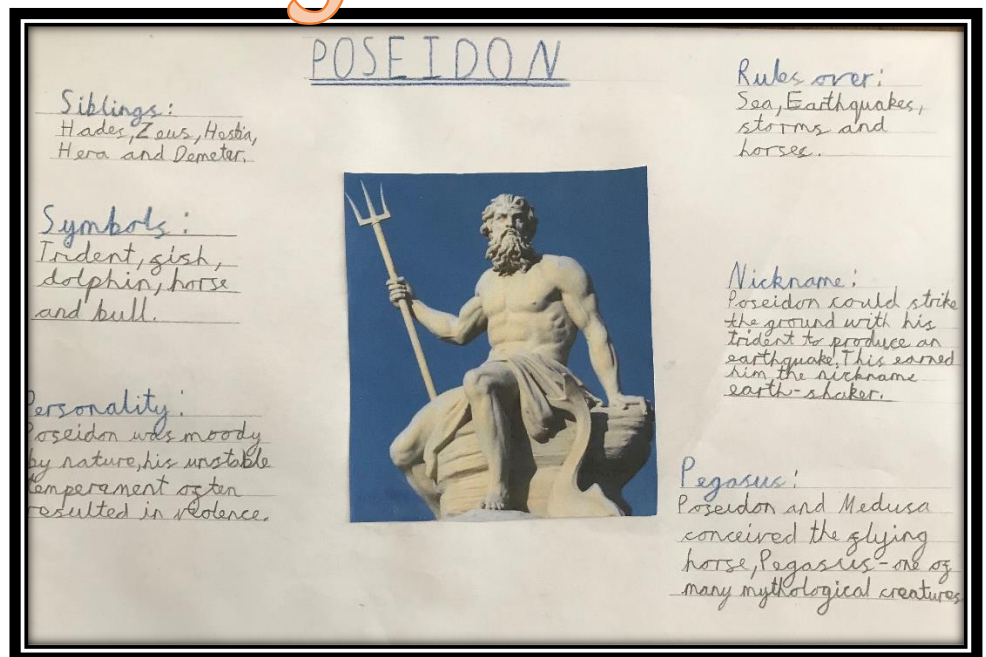 POSEIDON
Siblings:
Hades, Zeus, Hestia,
Hera and Demeter.
Symbols:
Trident, fish,
dolphin, horse
and bull.
Personality:
Poseidon was moody
by nature, his unstable
temperament often
resulted in violence.
Rules over:
Sea, Earthquakes,
storms and
horses.
Nickname:
Poseidon could strike
the ground with his
trident to produce an
earthquake. This earned
him the nickname
earth-shaker.
Pegasus:
Poseidon and Medusa
conceived the flying
horse, Pegasus - one of
many mythological creatures